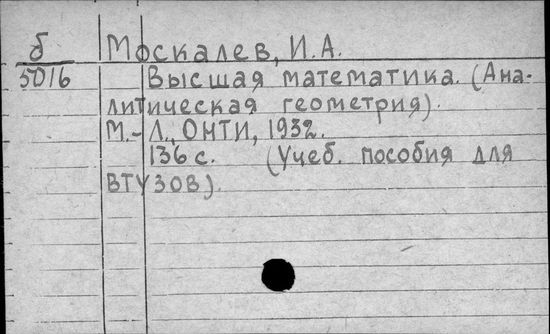 б Москалев, И.А.
5016 Высшая математика. (Ана-
литическая геометрия).
М.-Л., ОНТИ, 1932.
136 с. (Учеб. пособия для
ВТУЗОВ).